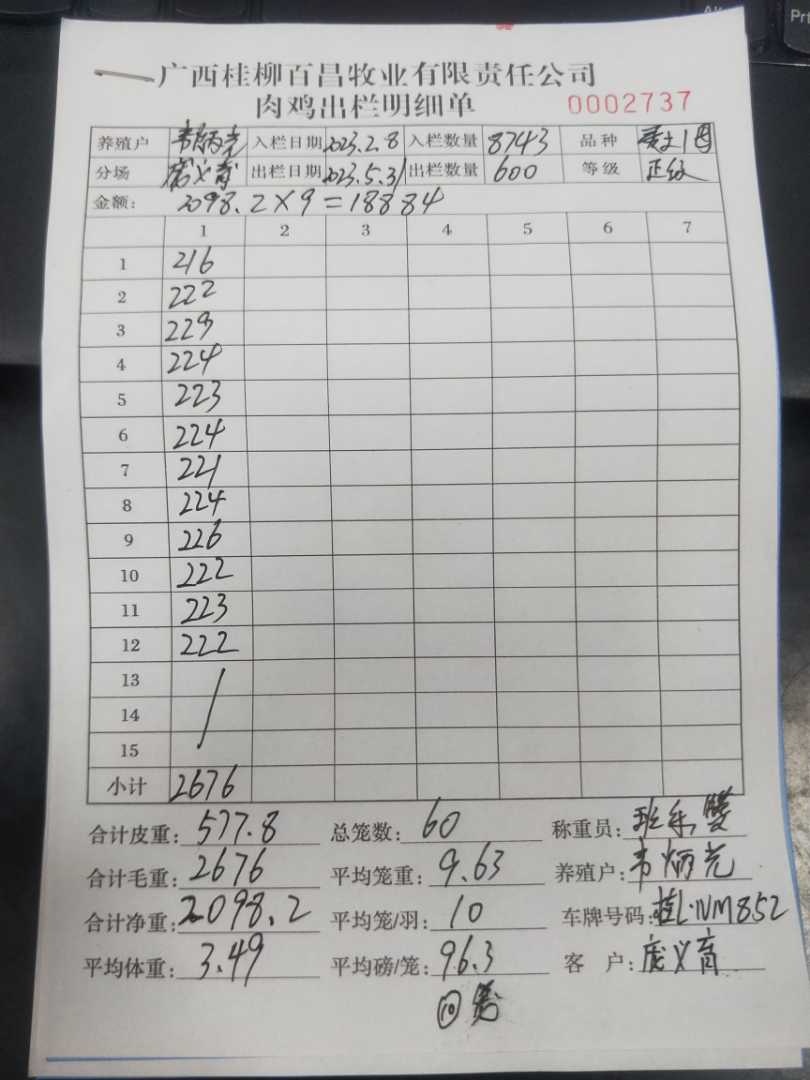 广西桂柳百昌牧业有限责任公司
肉鸡出栏明细单 0002737
养殖户 韦炳光 入栏日期 2023.2.8 入栏数量 8743 品种
分场 庞义育 出栏日期 2023.5.31 出栏数量 600 等级 正级
金额: 2098.2×9=18884
1 2 3 4 5 6 7
1 216
2 222
3 229
4 224
5 223
6 224
7 221
8 224
9 226
10 222
11 223
12 222
13
14
15
小计 2676
合计皮重: 577.8 总笼数: 60 称重员: 班
合计毛重: 2676 平均笼重: 9.63 养殖户: 韦炳光
合计净重: 2098.2 平均笼/羽: 10 车牌号码: 桂L·NM852
平均体重: 3.49 平均磅/笼: 96.3 客 户: 庞义育
⑩